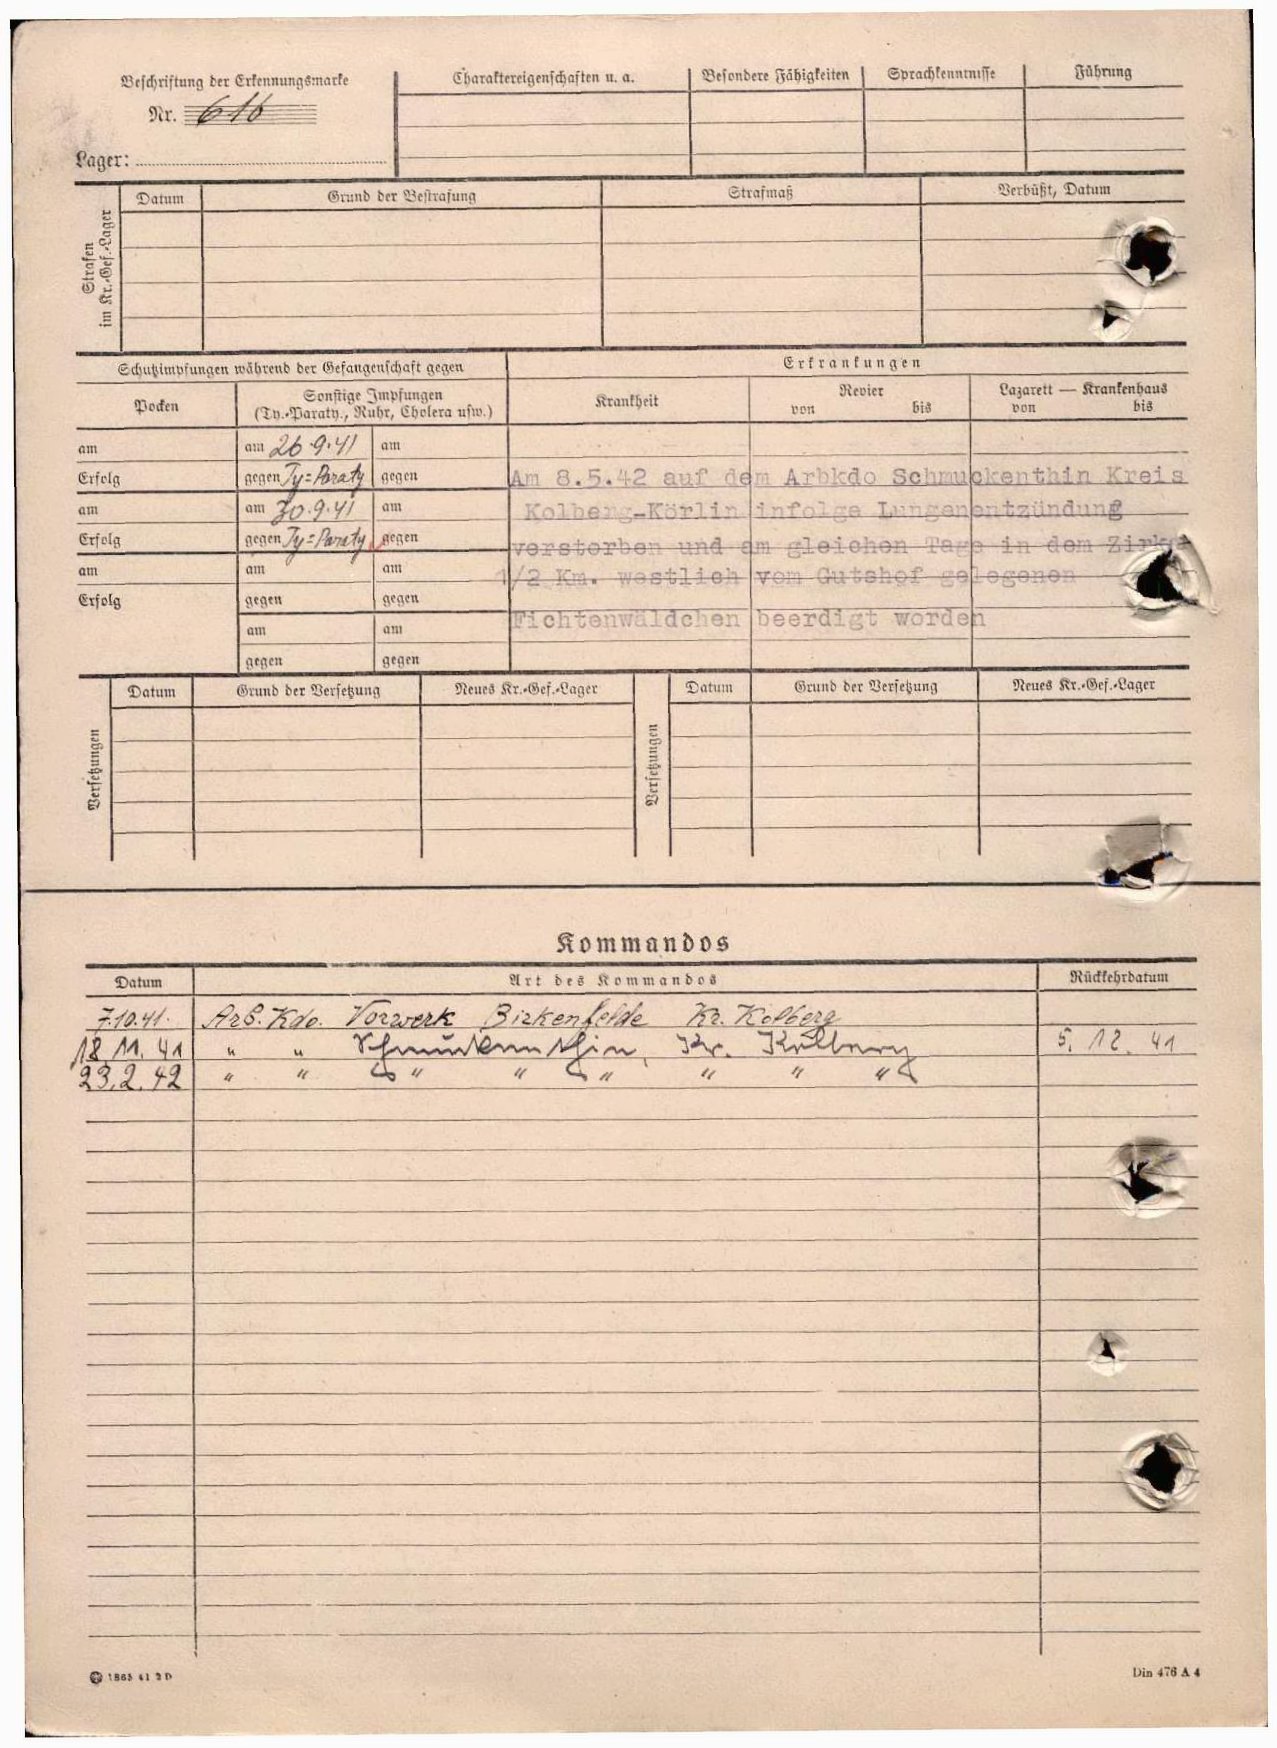 Beschriftung der Erkennungsmarke
Nr. 616
Lager:
Charaktereigenschaften u. a. Besondere Fähigkeiten Sprachkenntnisse Führung
Strafen im Kr.-Gef.-Lager
Datum Grund der Bestrafung Strafmaß Verbüßt, Datum
Schutzimpfungen während der Gefangenschaft gegen Erkrankungen
Pocken Sonstige Impfungen (Ty.-Paraty., Ruhr, Cholera usw.) Krankheit Revier von bis Lazarett — Krankenhaus von bis
am am 26.9.41 am
Erfolg gegen Ty=Paraty gegen Am 8.5.42 auf dem Arbkdo Schmuckenthin Kreis
am am 30.9.41 am Kolberg-Körlin infolge Lungenentzündung
Erfolg gegen Ty=Paraty gegen verstorben und am gleichen Tage in dem Zirka
am am am 1/2 Km. westlich vom Gutshof gelegenen
Erfolg gegen gegen Fichtenwäldchen beerdigt worden
am am
gegen gegen
Versetzungen Datum Grund der Versetzung Neues Kr.-Gef.-Lager Versetzungen Datum Grund der Versetzung Neues Kr.-Gef.-Lager
Kommandos
Datum Art des Kommandos Rückkehrdatum
7.10.41. Arb. Kdo. Vorwerk Birkenfelde Kr. Kolberg
18.11.41 " " Schmuckenthin, Kr. Kolberg 5.12.41
23.2.42 " " " " " " " "
1865 41 2 D
Din 476 A 4